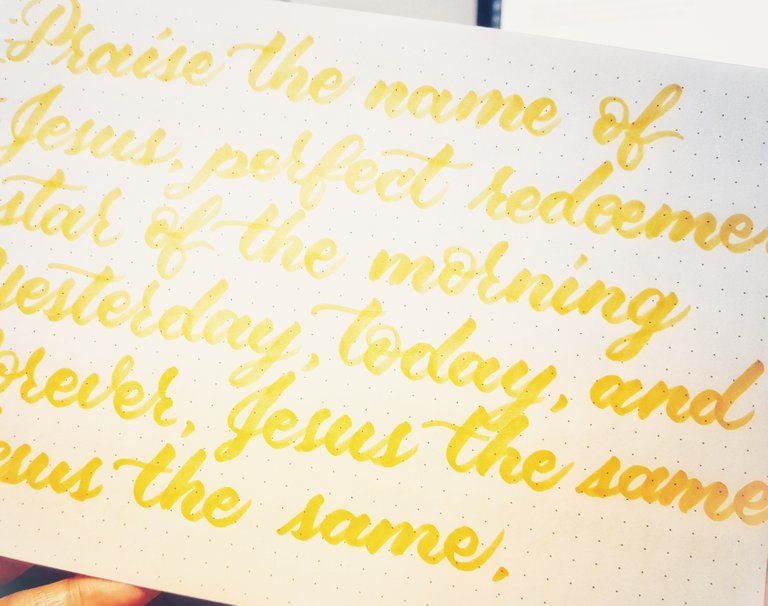 Praise the name of
Jesus, perfect redeemer
star of the morning
yesterday, today, and
forever, Jesus the same
Jesus the same.